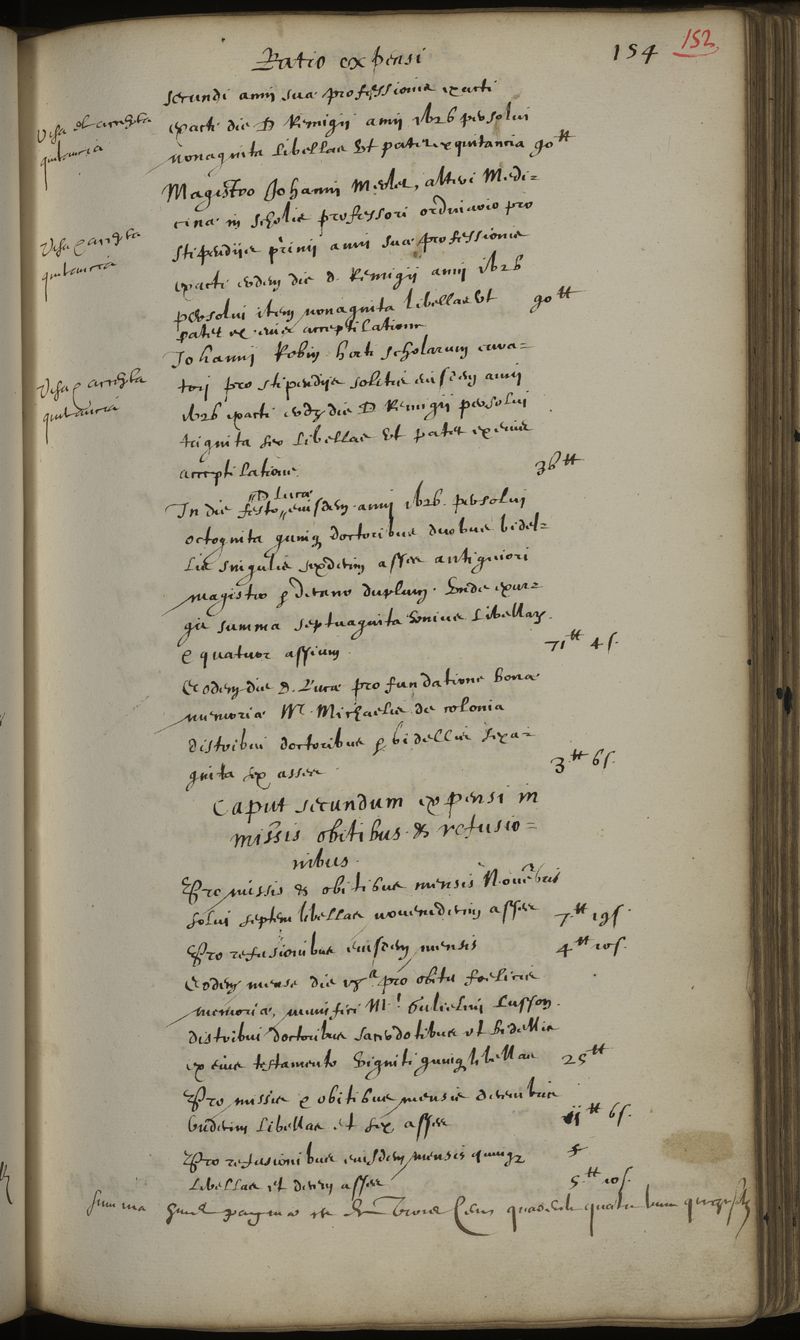 Ratio expensi
154
152
secundi anni suæ professionis exacti
exacti die D Remigii anni 1626 persolui
nonaginta libellas ut patet ex quitancia 90 tt
Visa et arresta
quitancia
Magistro Johanni Merlet, alteri Medi=
cinæ in scholis professori ordinario pro
stipendiis primi anni suæ professionis
exacti eodem die d. Remigii anni 1626
persolui item nonaginta libellas ut 90 tt
patet ex eius acceptilatione
Visa & arresta
quitancia
Johanni Robin horti scholarum cura=
tori pro stipendiis solitis eiusdem anni
1626 exacti eodem die D Remigii persolui
triginta sex libellas ut patet ex eius
acceptilatione 36 tt
Visa & arresta
quitancia
D Lucæ
In die festo eiusdem anni 1626. persolui
octoginta quinq doctoribus duobus bidel=
lis singulis sexdecim asses antiquiori
magistro & decano duplum. Unde exur=
git summa septuaginta unius libellar.
& quatuor assium. 71 tt 4 s.
Eodem die D. Lucæ pro fundatione bonæ
memoriæ Mr. Michaelis de colonia
distribui doctoribus & bidellis sexa=
ginta sex asses 3 tt 6 s.
Caput secundum expensi in
missis obitibus & refusio=
nibus.
Pro missis & obitibus mensis Novembris
solui septem libellas novemdecim asses 7 tt 19 s
Pro refusionibus eiusdem mensis 4 tt 10 s.
Eodem mense die pro obitu fœlicis
memoriæ, munifici Mri Gulielmi Lusson.
distribui doctoribus sacerdotibus et bidellis
ex eius testamento viginti quinq libellas 25 tt
Pro missis & obitibus mensis decembris
undecim libellas et sex asses 11 tt 6 s.
Pro refusionibus eiusdem mensis quinq
libellas et decem asses 5 tt 10 s.
Summa paginæ